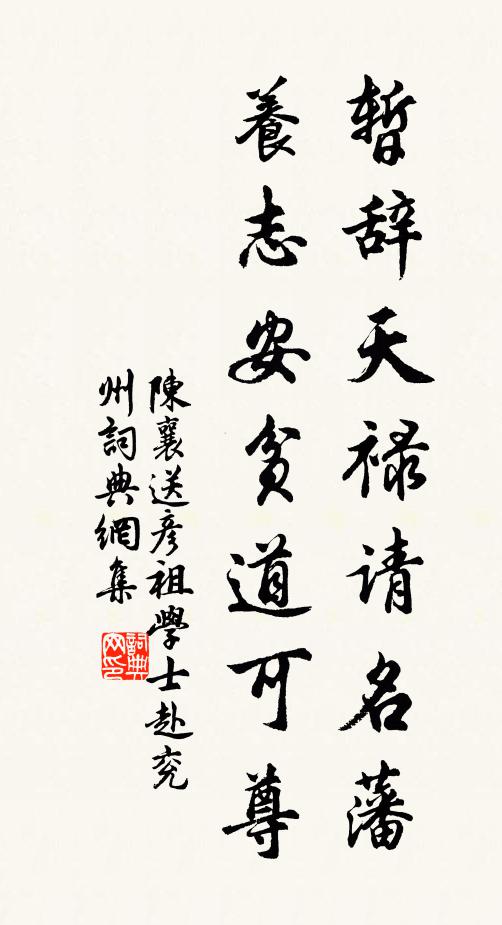 暫辞天禄请名藩
養志安貧道可尊
陳襄送彦祖學士赴兖
州詞典網集
詞典网印